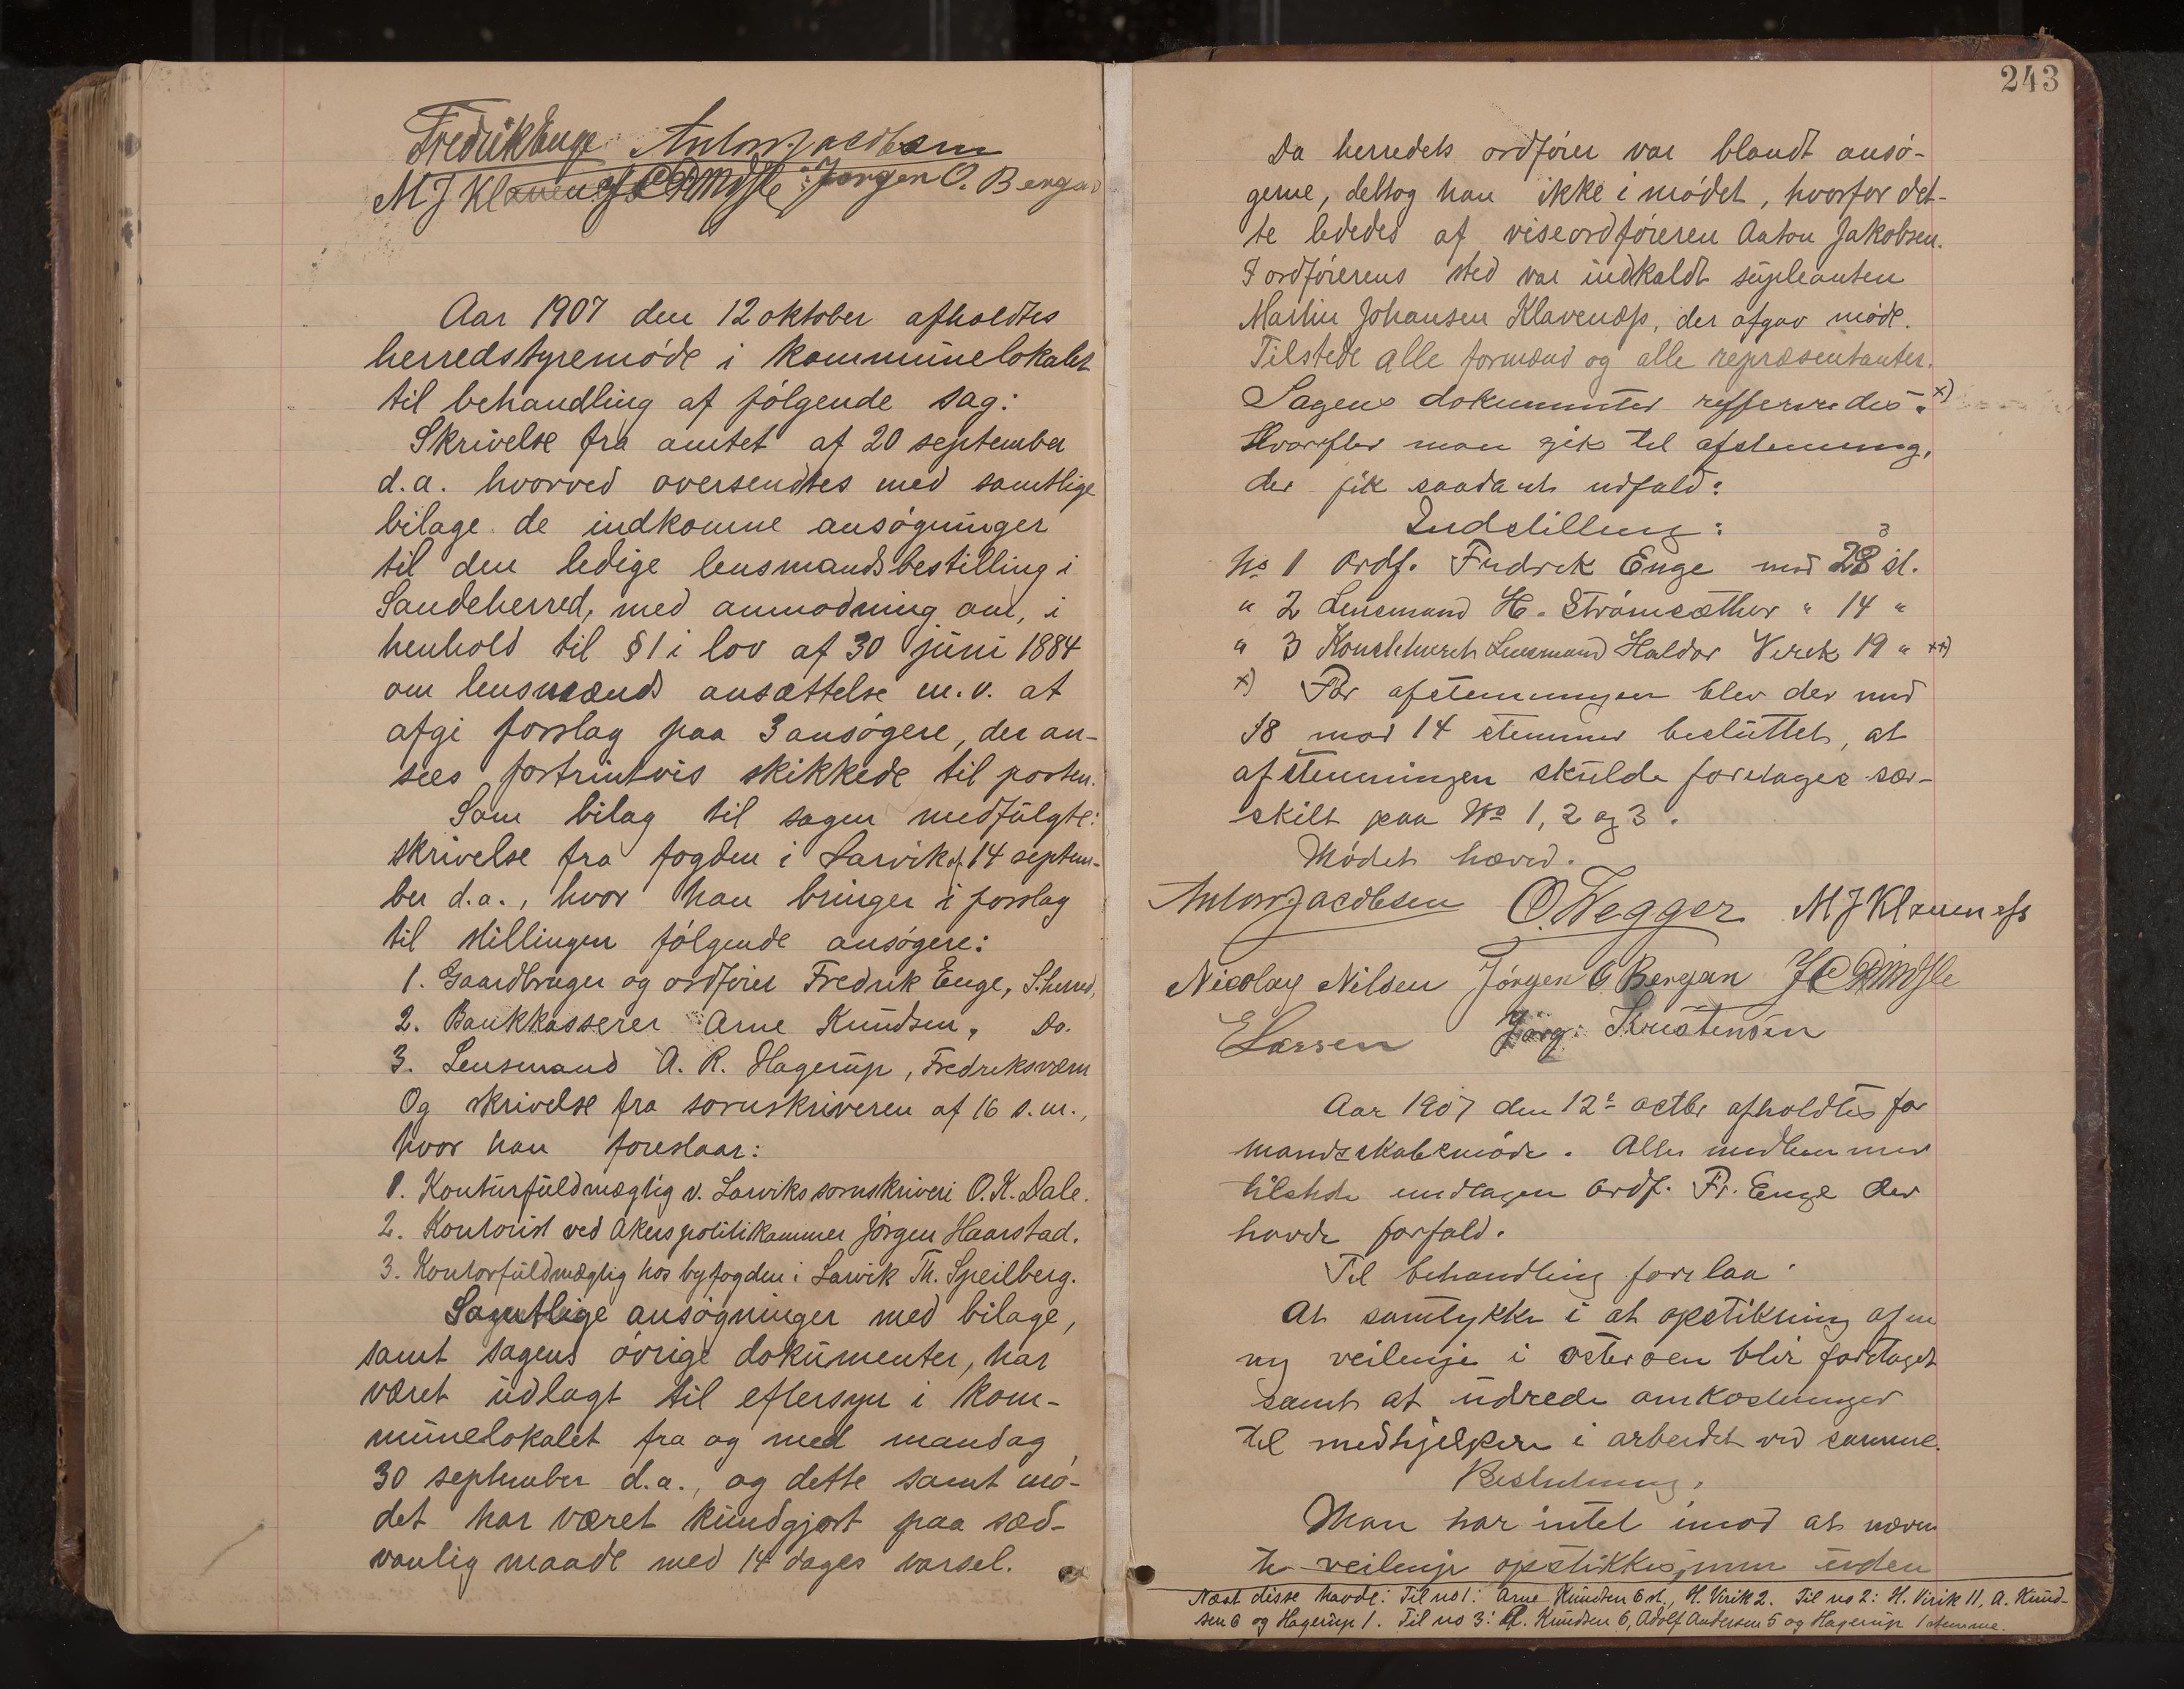 Fredrik Enge Anton Jacobsen
M J Klavenæss Jørgen O. Bergan
Aar 1907 den 12 oktober afholdtes
herredstyremøde i kommunelokalet
til behandling af følgende sag:
Skrivelse fra amtet af 20 september
d.a. hvorved oversendtes med samtlige
bilage de indkomne ansøgninger
til den ledige lensmandsbestilling i
Sandeherred, med anmodning om, i
henhold til § 1 i lov af 30 juni 1884
om lensmænds ansættelse m.v. at
afgi forslag paa 3 ansøgere, der an-
sees fortrinsvis skikkede til posten.
Som bilag til sagen medfulgte:
skrivelse fra fogden i Larvik af 14 septem-
ber d.a., hvor han bringer i forslag
til stillingen følgende ansøgere:
1. Gaardbruger og ordfører Fredrik Enge, S.herred,
2. Bankkasserer Arne Knudsen, Do.
3. Lensmand A. R. Hagerup, Fredriksværn
Og skrivelse fra sorenskriveren af 16 s.m.,
hvor han foreslaar:
1. Konturfuldmægtig v. Larviks sornskriveri O. K. Dale.
2. Kontorist ved Akers politikammer Jørgen Haarstad.
3. Kontorfuldmægtig hos byfogden i Larvik Th. Speilberg.
Samtlige ansøgninger med bilage,
samt sagens øvrige dokumenter, har
været udlagt til eftersyn i kom-
munelokalet fra og med mandag
30 september d.a., og dette samt mø-
det har været kundgjort paa sæd-
vanlig maade med 14 dages varsel.
243
Da herredets ordfører var blandt ansø-
gerne, deltog han ikke i mødet, hvorfor det-
te lededes af viseordføreren Anton Jakobsen.
I ordførerens sted var indkaldt supleanten
Martin Johansen Klavenæss, der afgav møde.
Tilstede alle formænd og alle repræsentanter.
Sagens dokumenter refferredes. x)
Hvorefter man gik til afstemning,
der fik saadant udfald:
Indstilling:
No 1 Ordf. Fredrik Enge med 23 st.
" 2 Lensmand H. Strömsæther " 14 "
" 3 Konst. Lensmand Haldor Virik 19 " xx)
x) Før afstemningen blev der med
18 mod 14 stemmer besluttet, at
afstemningen skulde foretages sær-
skilt paa No 1, 2 og 3.
Mødet hævet.
Anton Jacobsen O. Wegger M J Klavenæss
Nicolay Nilsen Jørgen O Bergan
E Larsen Jørg: Kristensen
Aar 1907 den 12 octbr afholdtes for
mandskabsmøde. Alle medlemmer
tilstede undtagen Ordf. Fr. Enge der
havde forfald.
Til behandling forelaa:
At samtykke i at opstikning af en
ny veilinje i Østerøen blir foretaget
samt at udrede omkostninger
til medhjelpere i arbeidet ved samme.
Beslutning.
Man har intet imod at nævn
te veilinje opstikkes, men uden
Næst disse havde: Til no 1: Arne Knudsen 6 st., H. Virik 2. Til no 2: H. Virik 11, A. Knud-
sen 6 og Hagerup 1. Til no 3: A. Knudsen 6, Adolf Andersen 5 og Hagerup 1 stemme.